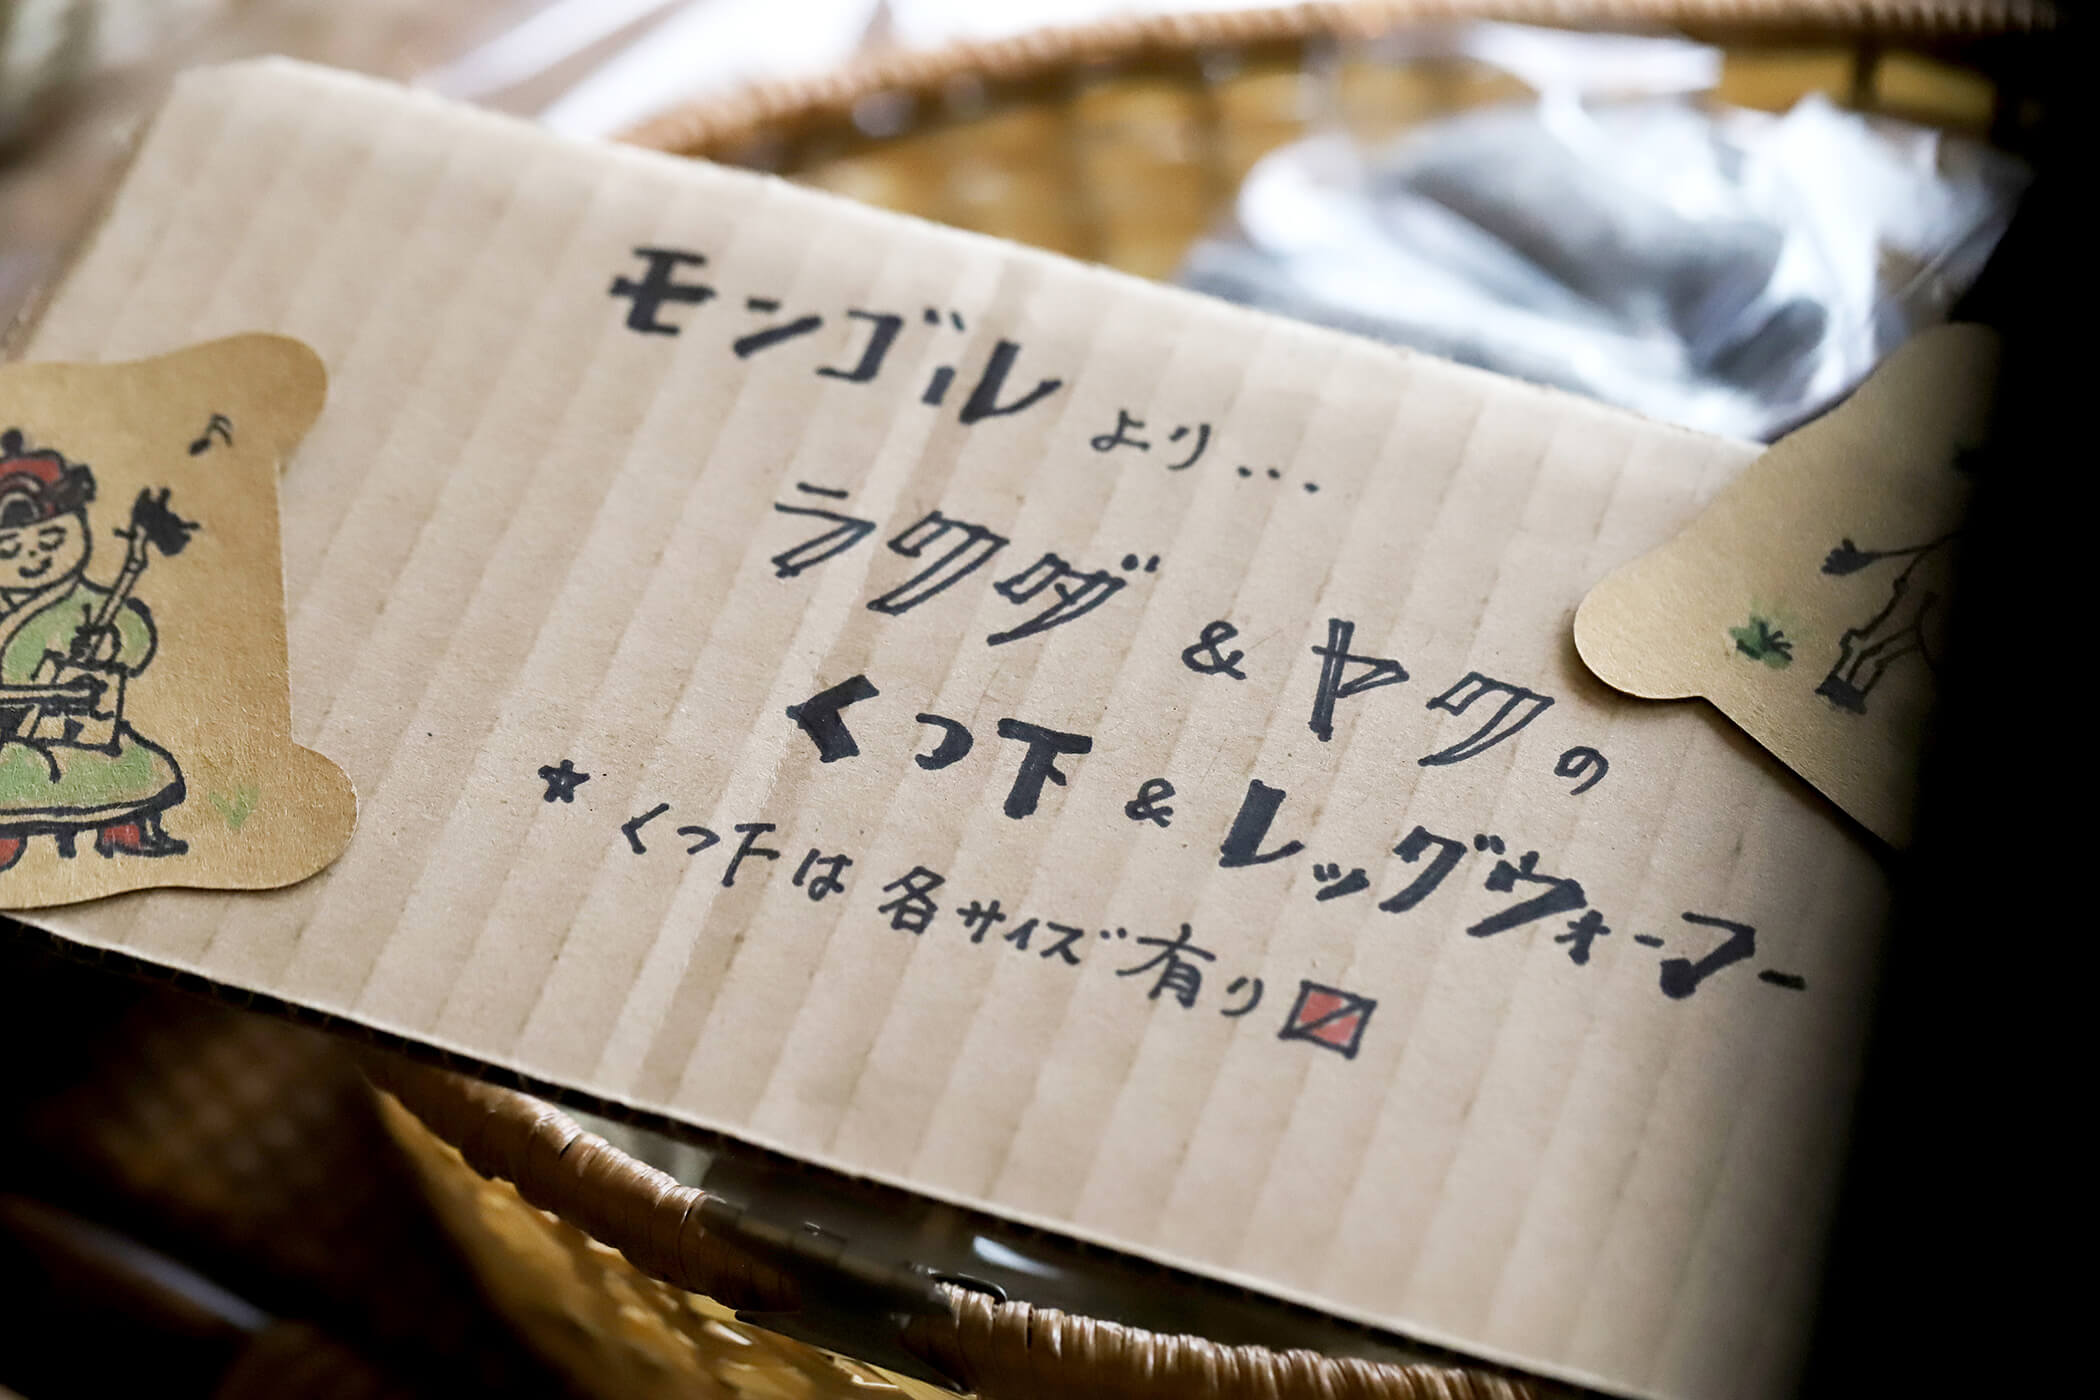 モンゴルより...
ラクダ & ヤクの
くつ下 & レッグウォーマー
* くつ下は各サイズ有り〼